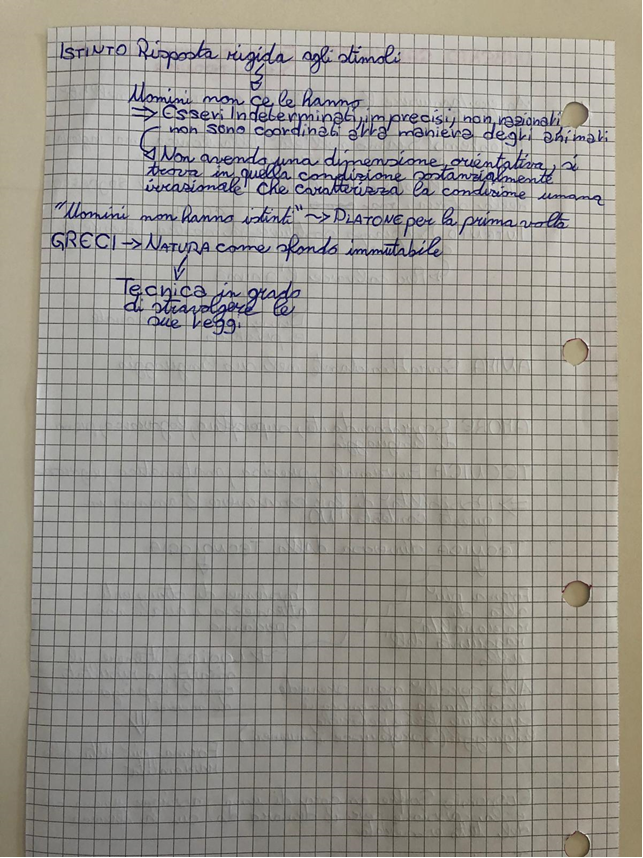 ISTINTO Risposta rigida agli stimoli
Uomini non ce le hanno
⇒ Esseri Indeterminati, imprecisi, non razionali
non sono coordinati alla maniera degli animali
Non avendo una dimensione orientativa, si
trova in quella condizione sostanzialmente
irrazionale che caratterizza la condizione umana
"Uomini non hanno istinti" ~> PLATONE per la prima volta
GRECI → NATURA come sfondo immutabile
Tecnica in grado
di stravolgere le
sue leggi